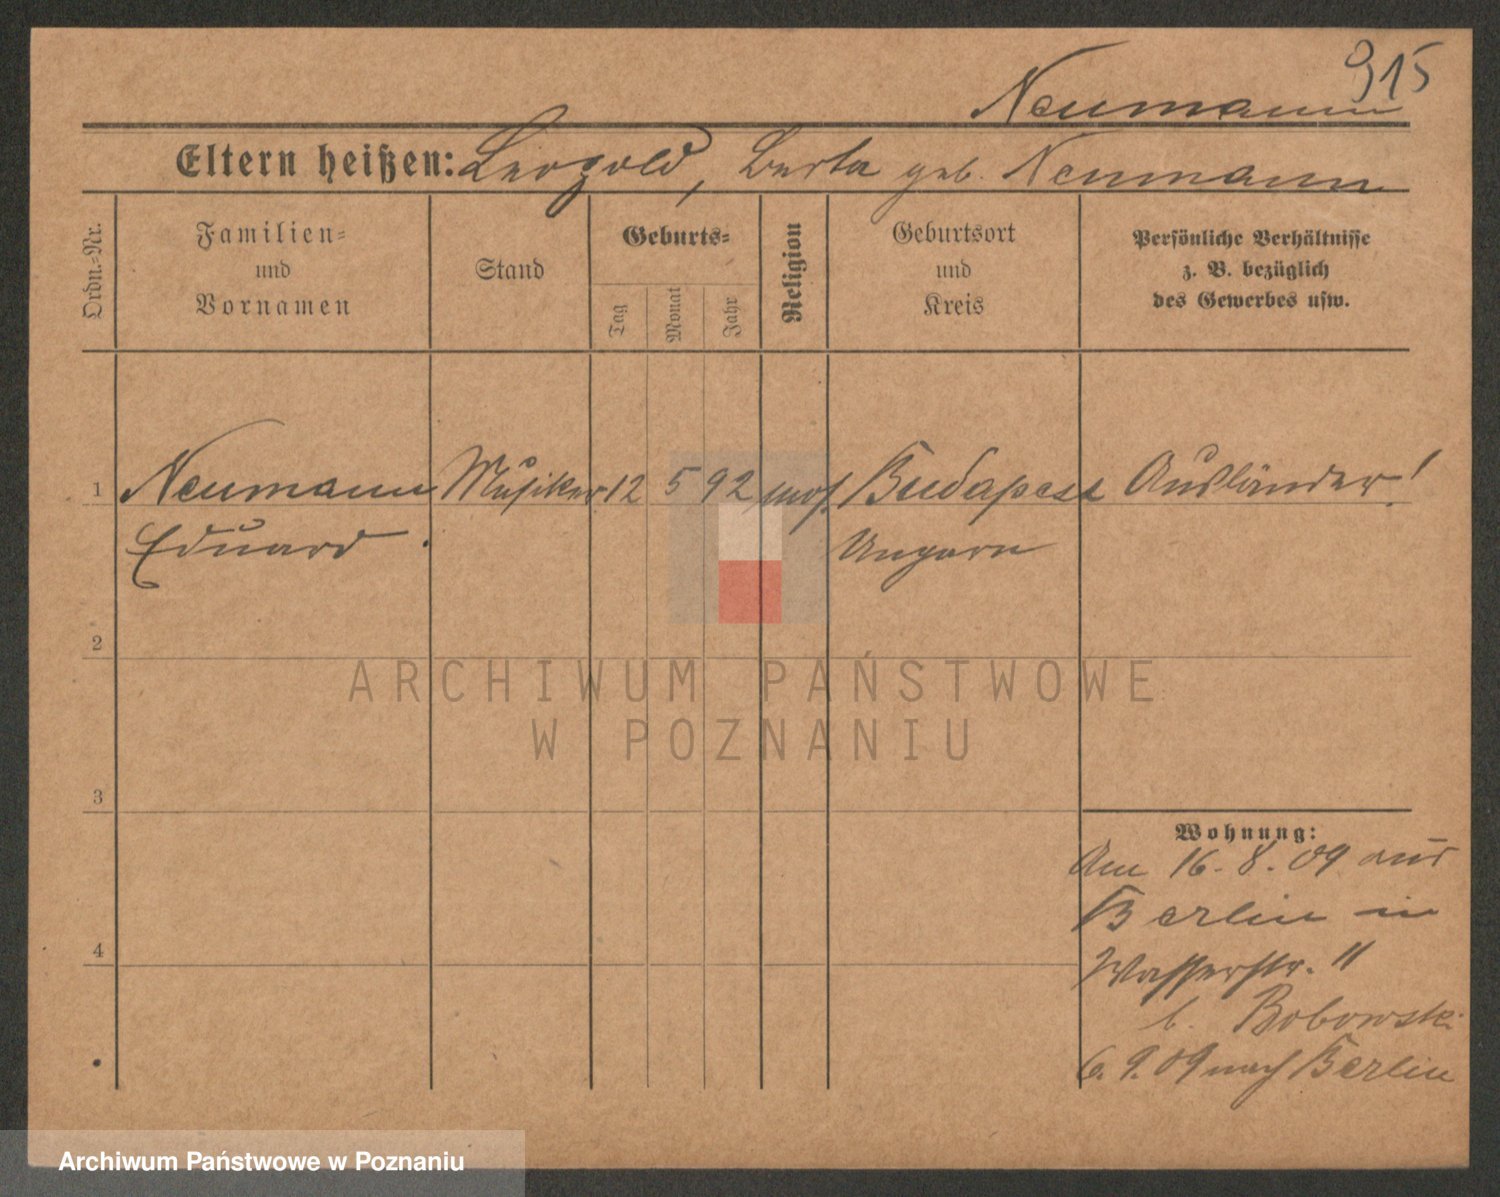 915
Neumann
Eltern heißen: Leopold, Berta geb. Neumann
Ordn.-Nr.
Familien-
und
Vornamen
Stand
Geburts-
Tag
Monat
Jahr
Religion
Geburtsort
und
Kreis
Persönliche Verhältnisse
z. B. bezüglich
des Gewerbes usw.
1 Neumann Musiker 12 5 92 mos. Budapest Ausländer!
Eduard. Ungarn
2
ARCHIWUM PAŃSTWOWE
W POZNANIU
3
Wohnung:
Am 16.8.09 aus
Berlin in
4
Wasserstr. 11
b. Bobowski
6.9.09 nach Berlin
Archiwum Państwowe w Poznaniu